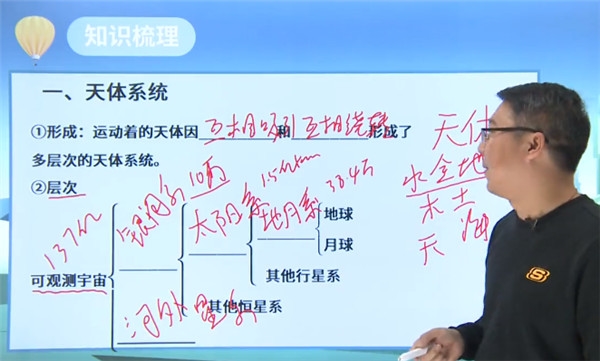 知识梳理
一、天体系统
①形成：运动着的天体因互相吸引和互相绕转形成了
多层次的天体系统。
②层次
137亿
银河系 10万
太阳系 1.5亿km
地月系 38.4万
地球
月球
可观测宇宙
其他行星系
其他恒星系
河外星系
天体
水金地
木土
天海
S